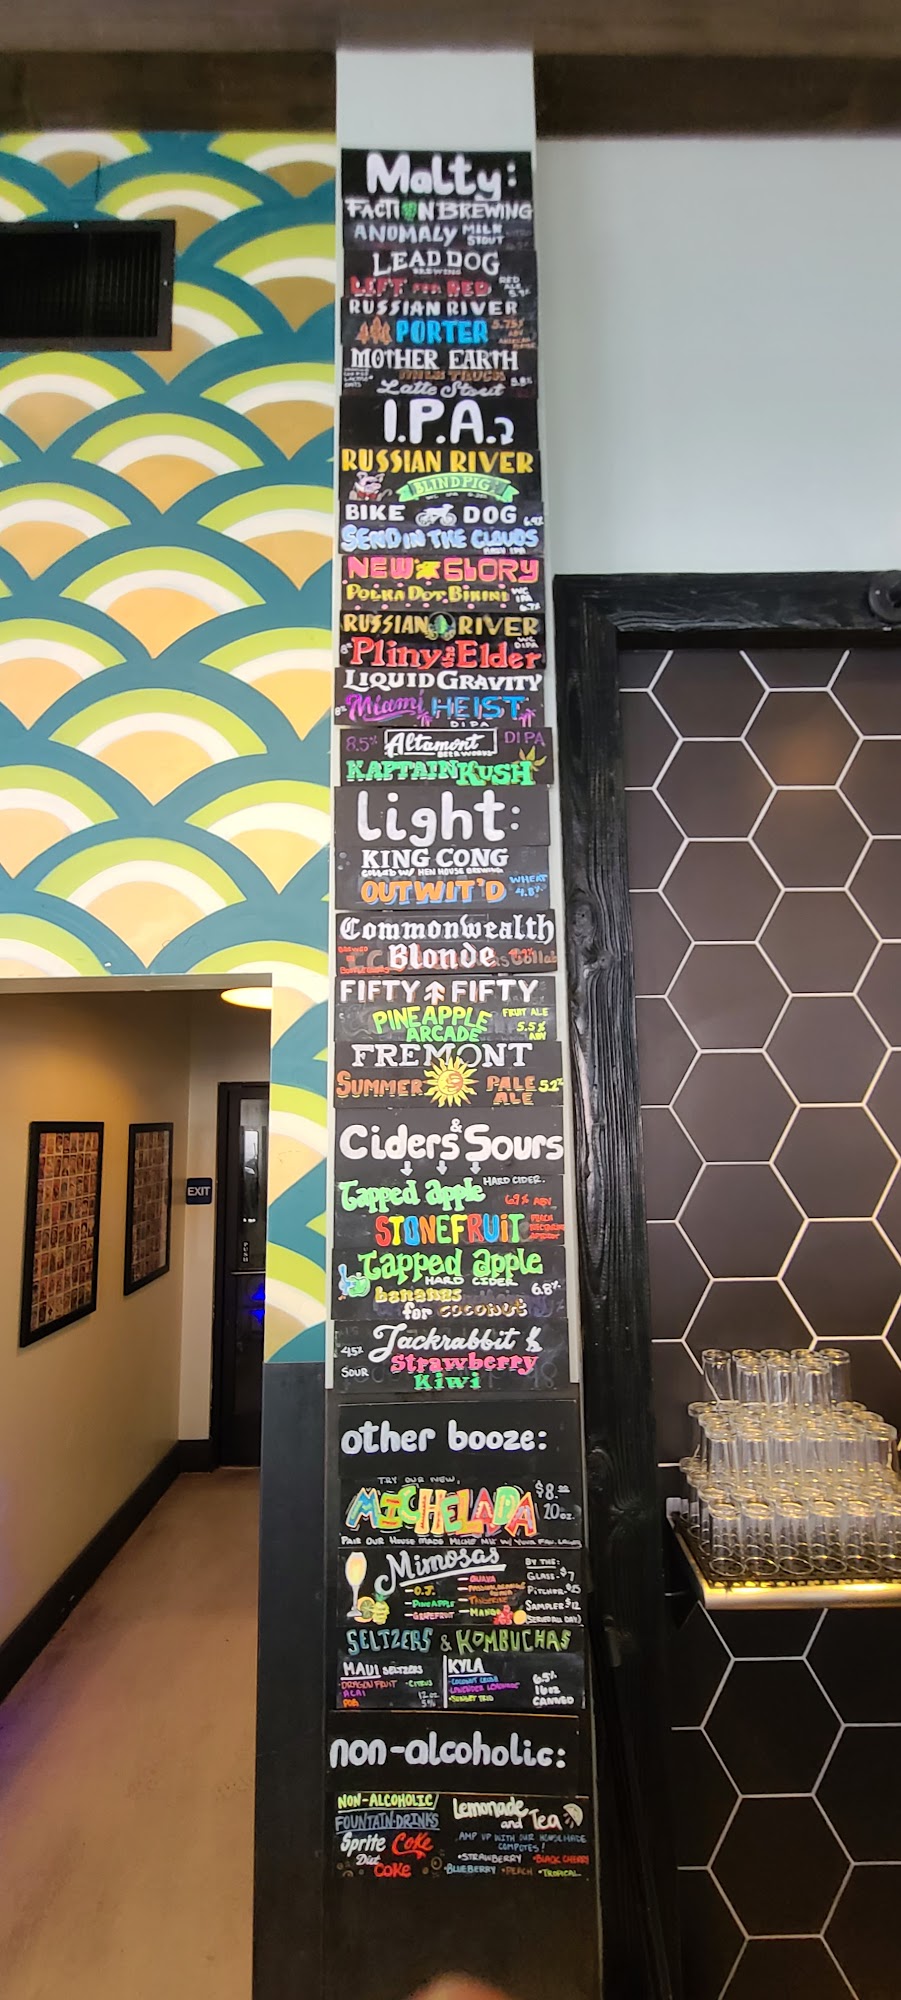 Malty:
FACTION BREWING
ANOMALY MILK STOUT
LEAD DOG
BREWING
LEFT FOR RED RED ALE
RUSSIAN RIVER
PORTER 5.75%
MOTHER EARTH
MILK TRUCK
Latte Stout 5.8%
I.P.A.
RUSSIAN RIVER
BLIND PIG
BIKE DOG 6.9%
SEND IN THE CLOUDS
HAZY IPA
NEW GLORY
POLKA DOT BIKINI WC IPA
6.7%
RUSSIAN RIVER
8% Pliny the Elder WC DIPA
LIQUID GRAVITY
8% Miami HEIST
DIPA
8.5% Altamont DIPA
BEER WORKS
KAPTAIN KUSH
Light:
KING CONG
COLLAB W/ HEN HOUSE BREWING
OUTWIT'D WHEAT 4.8%
Commonwealth
Blonde
FIFTY FIFTY
PINEAPPLE ARCADE FRUIT ALE 5.5% ABV
FREMONT
SUMMER PALE ALE 5.2%
Ciders & Sours
Tapped Apple HARD CIDER
6.9% ABV
STONEFRUIT
Tapped Apple
HARD CIDER 6.8%
bananas
for coconut
Jackrabbit
4.5% Strawberry
SOUR Kiwi
other booze:
TRY OUR NEW
MICHELADA $8.00 20oz.
PAIR OUR HOUSE MADE MICHE MIX W/ YOUR FAV. LAGER
Mimosas BY THE:
- O.J. - GUAVA GLASS - $7
- PINEAPPLE PITCHER - $25
- GRAPEFRUIT TANGERINE SAMPLER $12
- MANGO (SERVED ALL DAY)
SELTZERS & KOMBUCHAS
MAUI SELTZERS KYLA
· DRAGON FRUIT · CITRUS
ACAI LAVENDER LEMONADE 6.5%
POG 12oz 5% · SUNDAY TRIO 16oz CANNED
non-alcoholic:
NON-ALCOHOLIC
FOUNTAIN-DRINKS
Sprite Coke
Diet COKE
Lemonade and Tea
AMP UP WITH OUR HOMEMADE
COMPOTES!
· STRAWBERRY · BLACK CHERRY
· BLUEBERRY · PEACH · TROPICAL
EXIT
PUSH